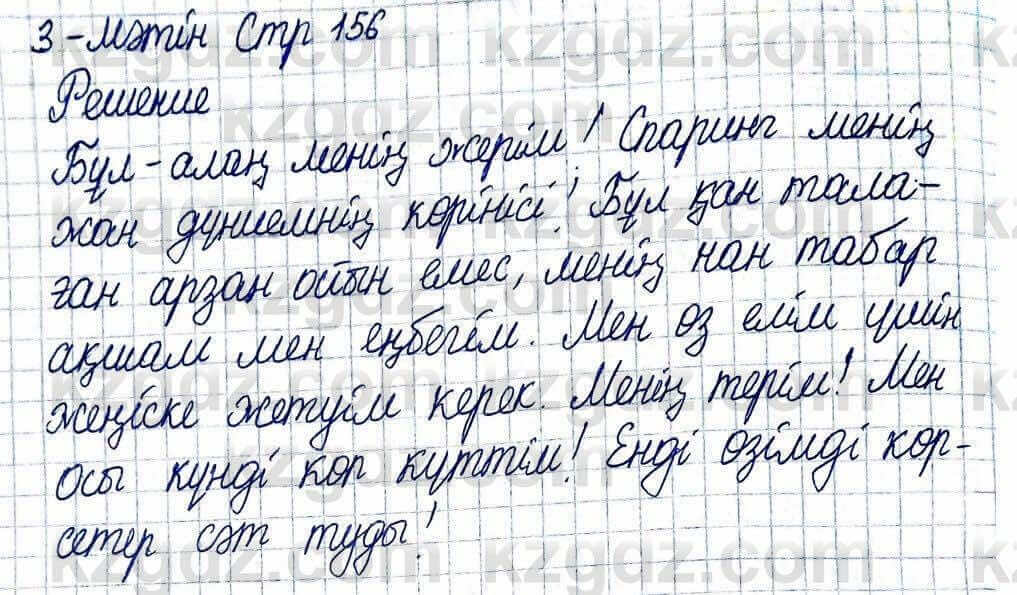 3-мәтін Стр 156
Решение
Бұл-алаң менің жерім! Спаринг менің
жан дүниемнің көрінісі! Бұл қан тала-
ған арзан ойын емес, менің нан табар
ақшам мен еңбегім. Мен өз елім үшін
жеңіске жетуім керек. Менің терім! Мен
осы күнді көп күттім! Енді өзімді көр-
сетер сәт туды!